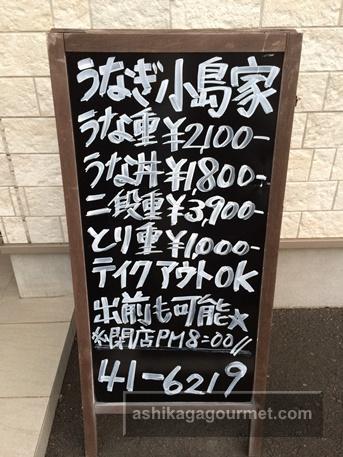 うなぎ小島家
うな重¥2,100-
うな丼¥1,800-
二段重¥3,900-
とり重¥1,000-
テイクアウトOK
出前も可能★
※閉店PM8:00
41-6219
ashikagagourmet.com